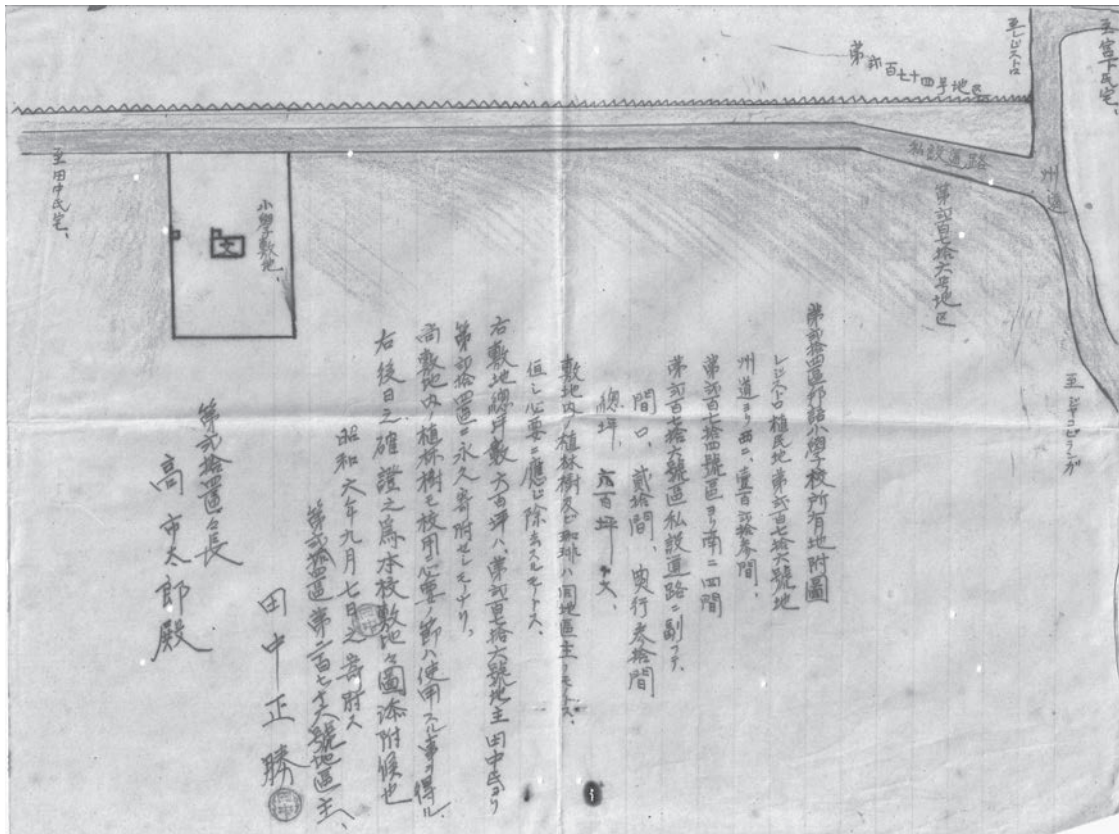 至宮下氏宅、
至レジストロ
第弐百七十四号地区
私設道路
州道
第弐百七拾六号地区
至ジャコピランガ
至田中氏宅、
小學敷地、
文
第弐拾四區邦語小學校所有地附圖
レジストロ植民地第弐百七拾六號地
州道ヨリ西ニ、壹百弐拾參間、
第弐百七拾四號區ヨリ南ニ四間
第弐百七拾六號區私設道路ニ副フテ、
間口、貳拾間、奥行参拾間
總坪、六百坪
敷地内ノ植林樹及ビ珈琲ハ同地區主ノモノトス、
但シ必要ニ應ジ除去スルモノトス、
右敷地總坪数六百坪ハ、第弐百七拾六號地主田中氏ヨリ
第弐拾四區ニ永久寄附セシモノナリ、
尚敷地内ノ植林樹モ校用必要ノ節ハ使用スル事ヲ得ル
右後日之確證之爲本校敷地圖添附候也
昭和六年九月七日之寄附ス
第弐拾四區第二百七十六號地區主、
田中正勝
田中
第弐拾四區々長
高市太郎殿